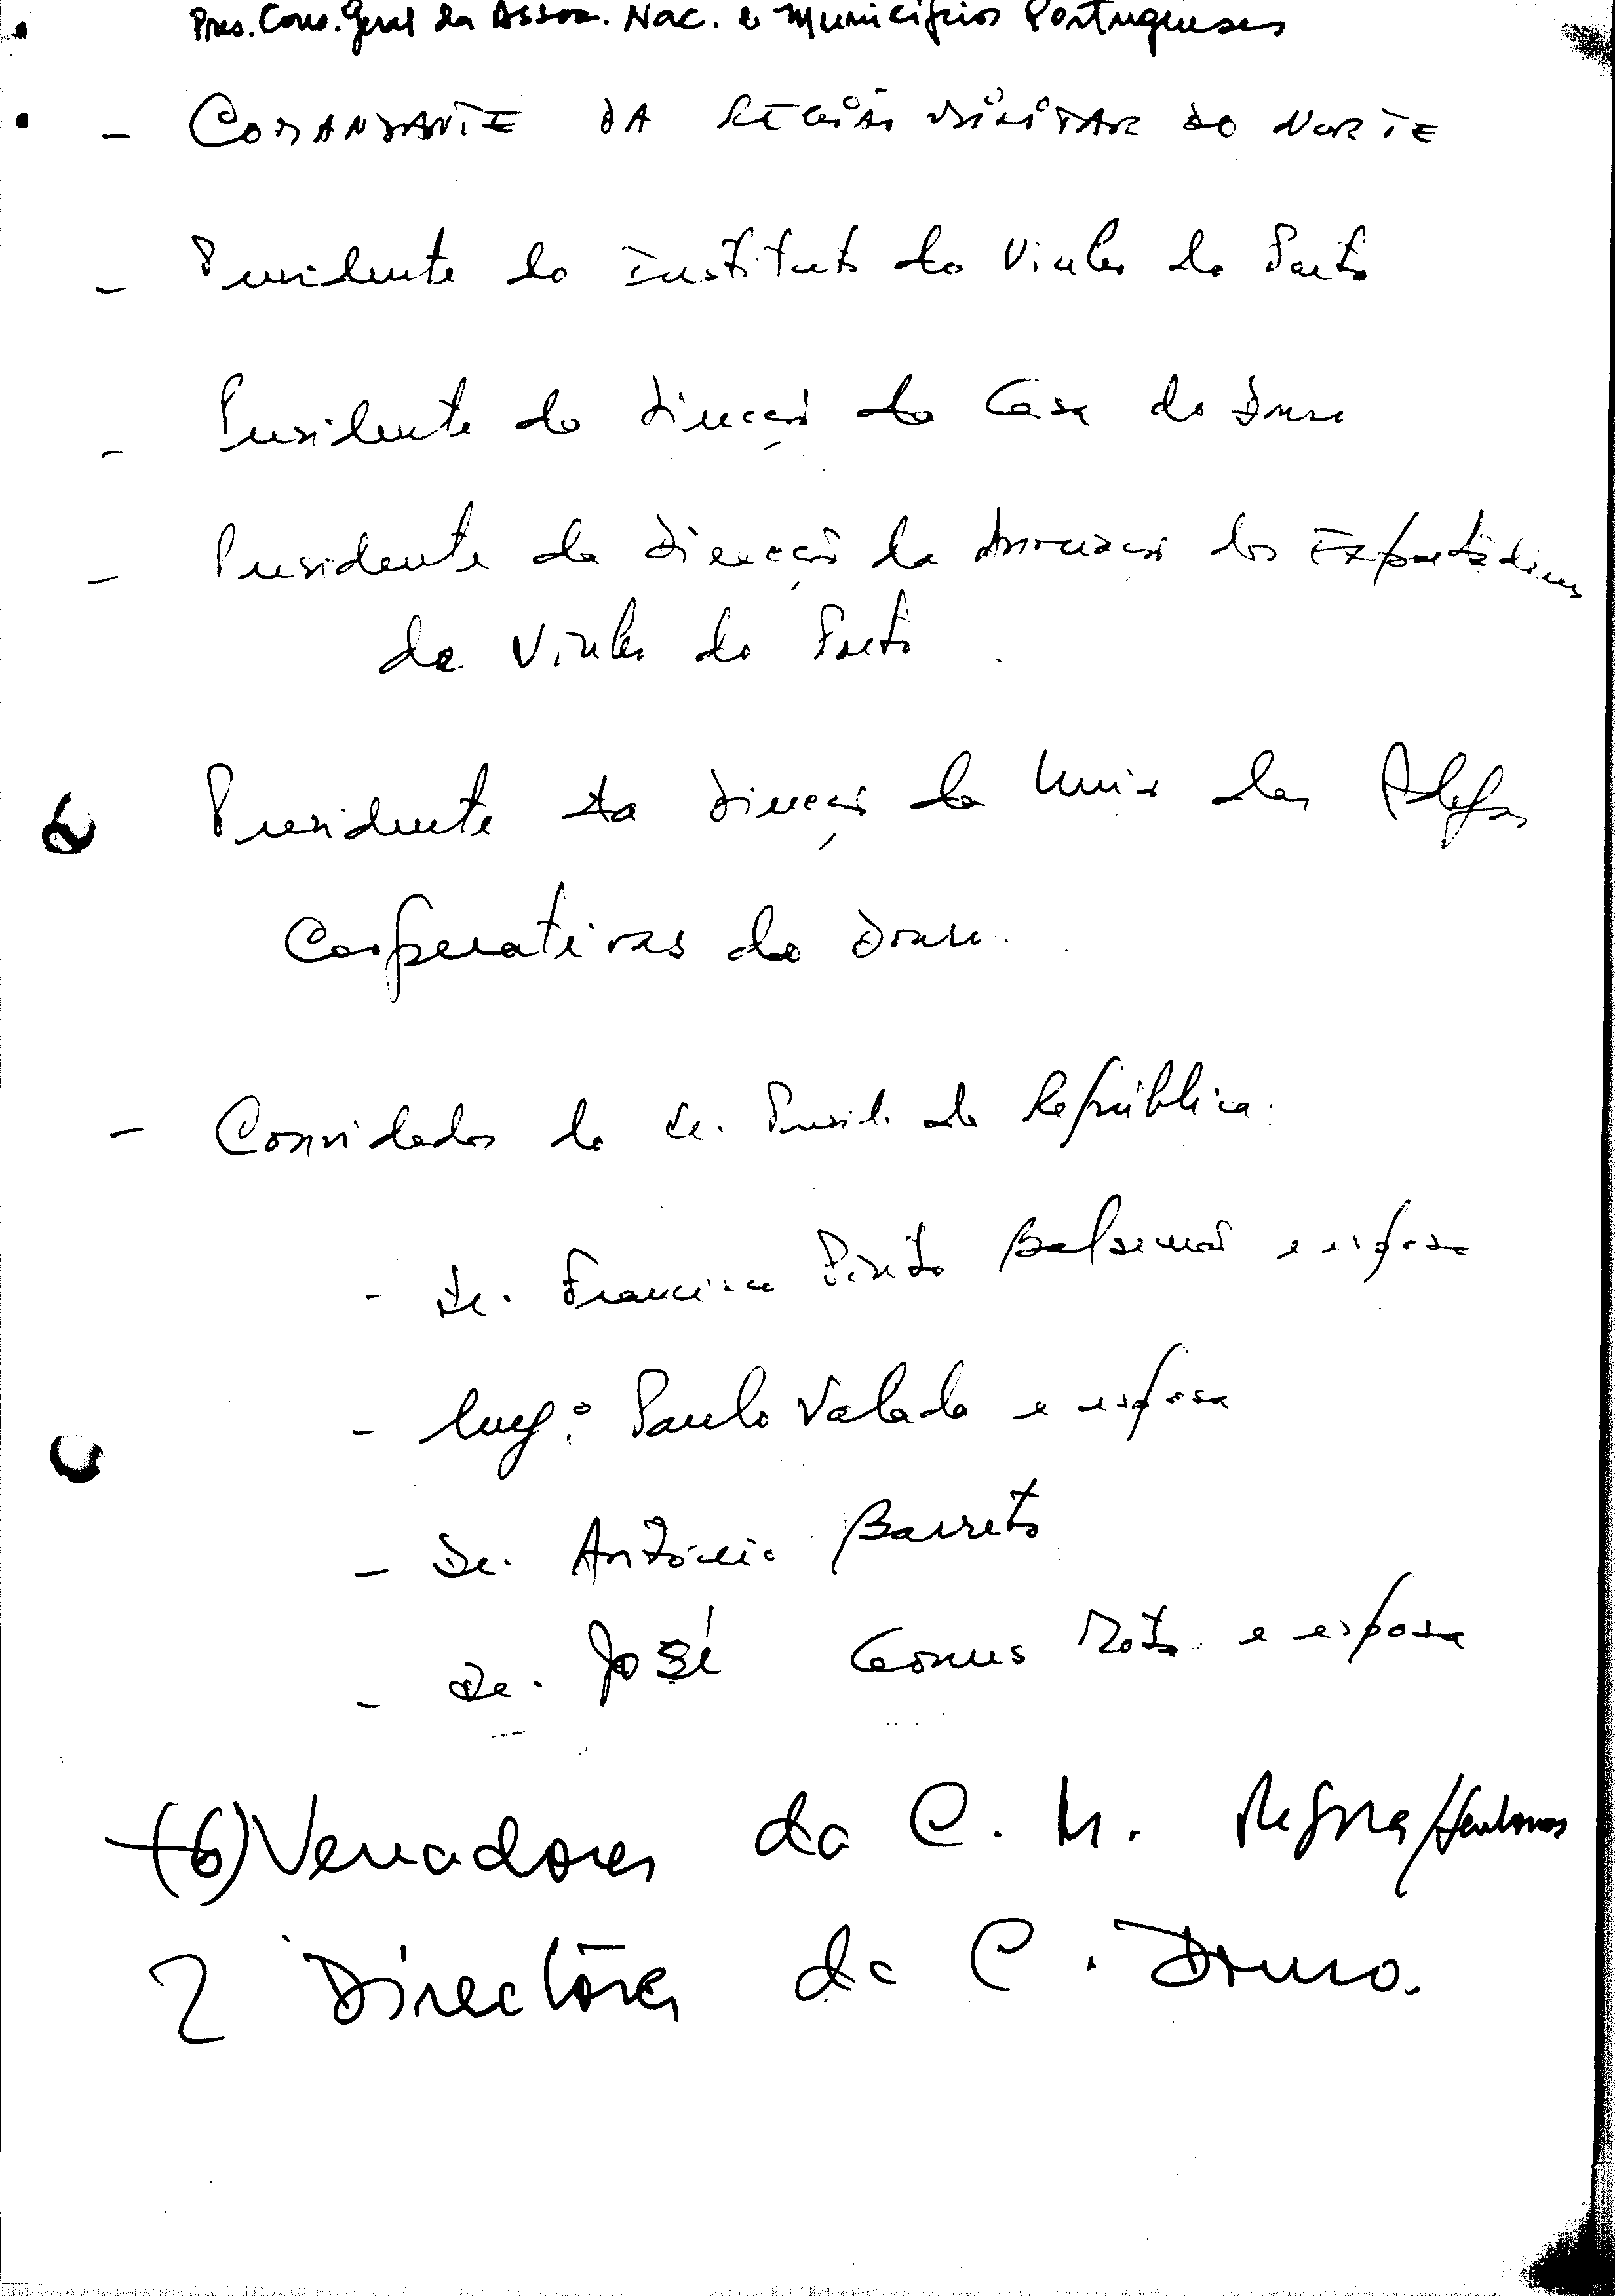 Pres. Cons. Geral da Assoc. Nac. e Municípios Portugueses
- COMANDANTE DA REGIÃO MILITAR DO NORTE
- Presidente do Instituto do Vinho do Porto
- Presidente da Direcção da Casa do Douro
- Presidente da Direcção da Associação dos Exportadores
do Vinho do Porto
Presidente da Direcção da União das Adegas
Cooperativas do Douro.
- Convidados do Sr. Presid. da República:
- Dr. Francisco Pinto Balsemão e esposa
- Eng.º Paulo Valada e esposa
- Dr. António Barreto
- Dr. José Gomes Mota e esposa
(6) Vereadores da C. M. Régua/
2 Directores da C. Douro.